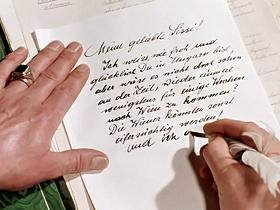 Meine geliebte Sissi!
Ich weiss, wie froh und
glücklich Du in Ungarn bist,
aber wäre es nicht doch schon
an der Zeit, wieder einmal
wenigstens für einige Wochen
nach Wien zu kommen?
Die Wiener könnten sonst
eifersüchtig werden!
Und ich